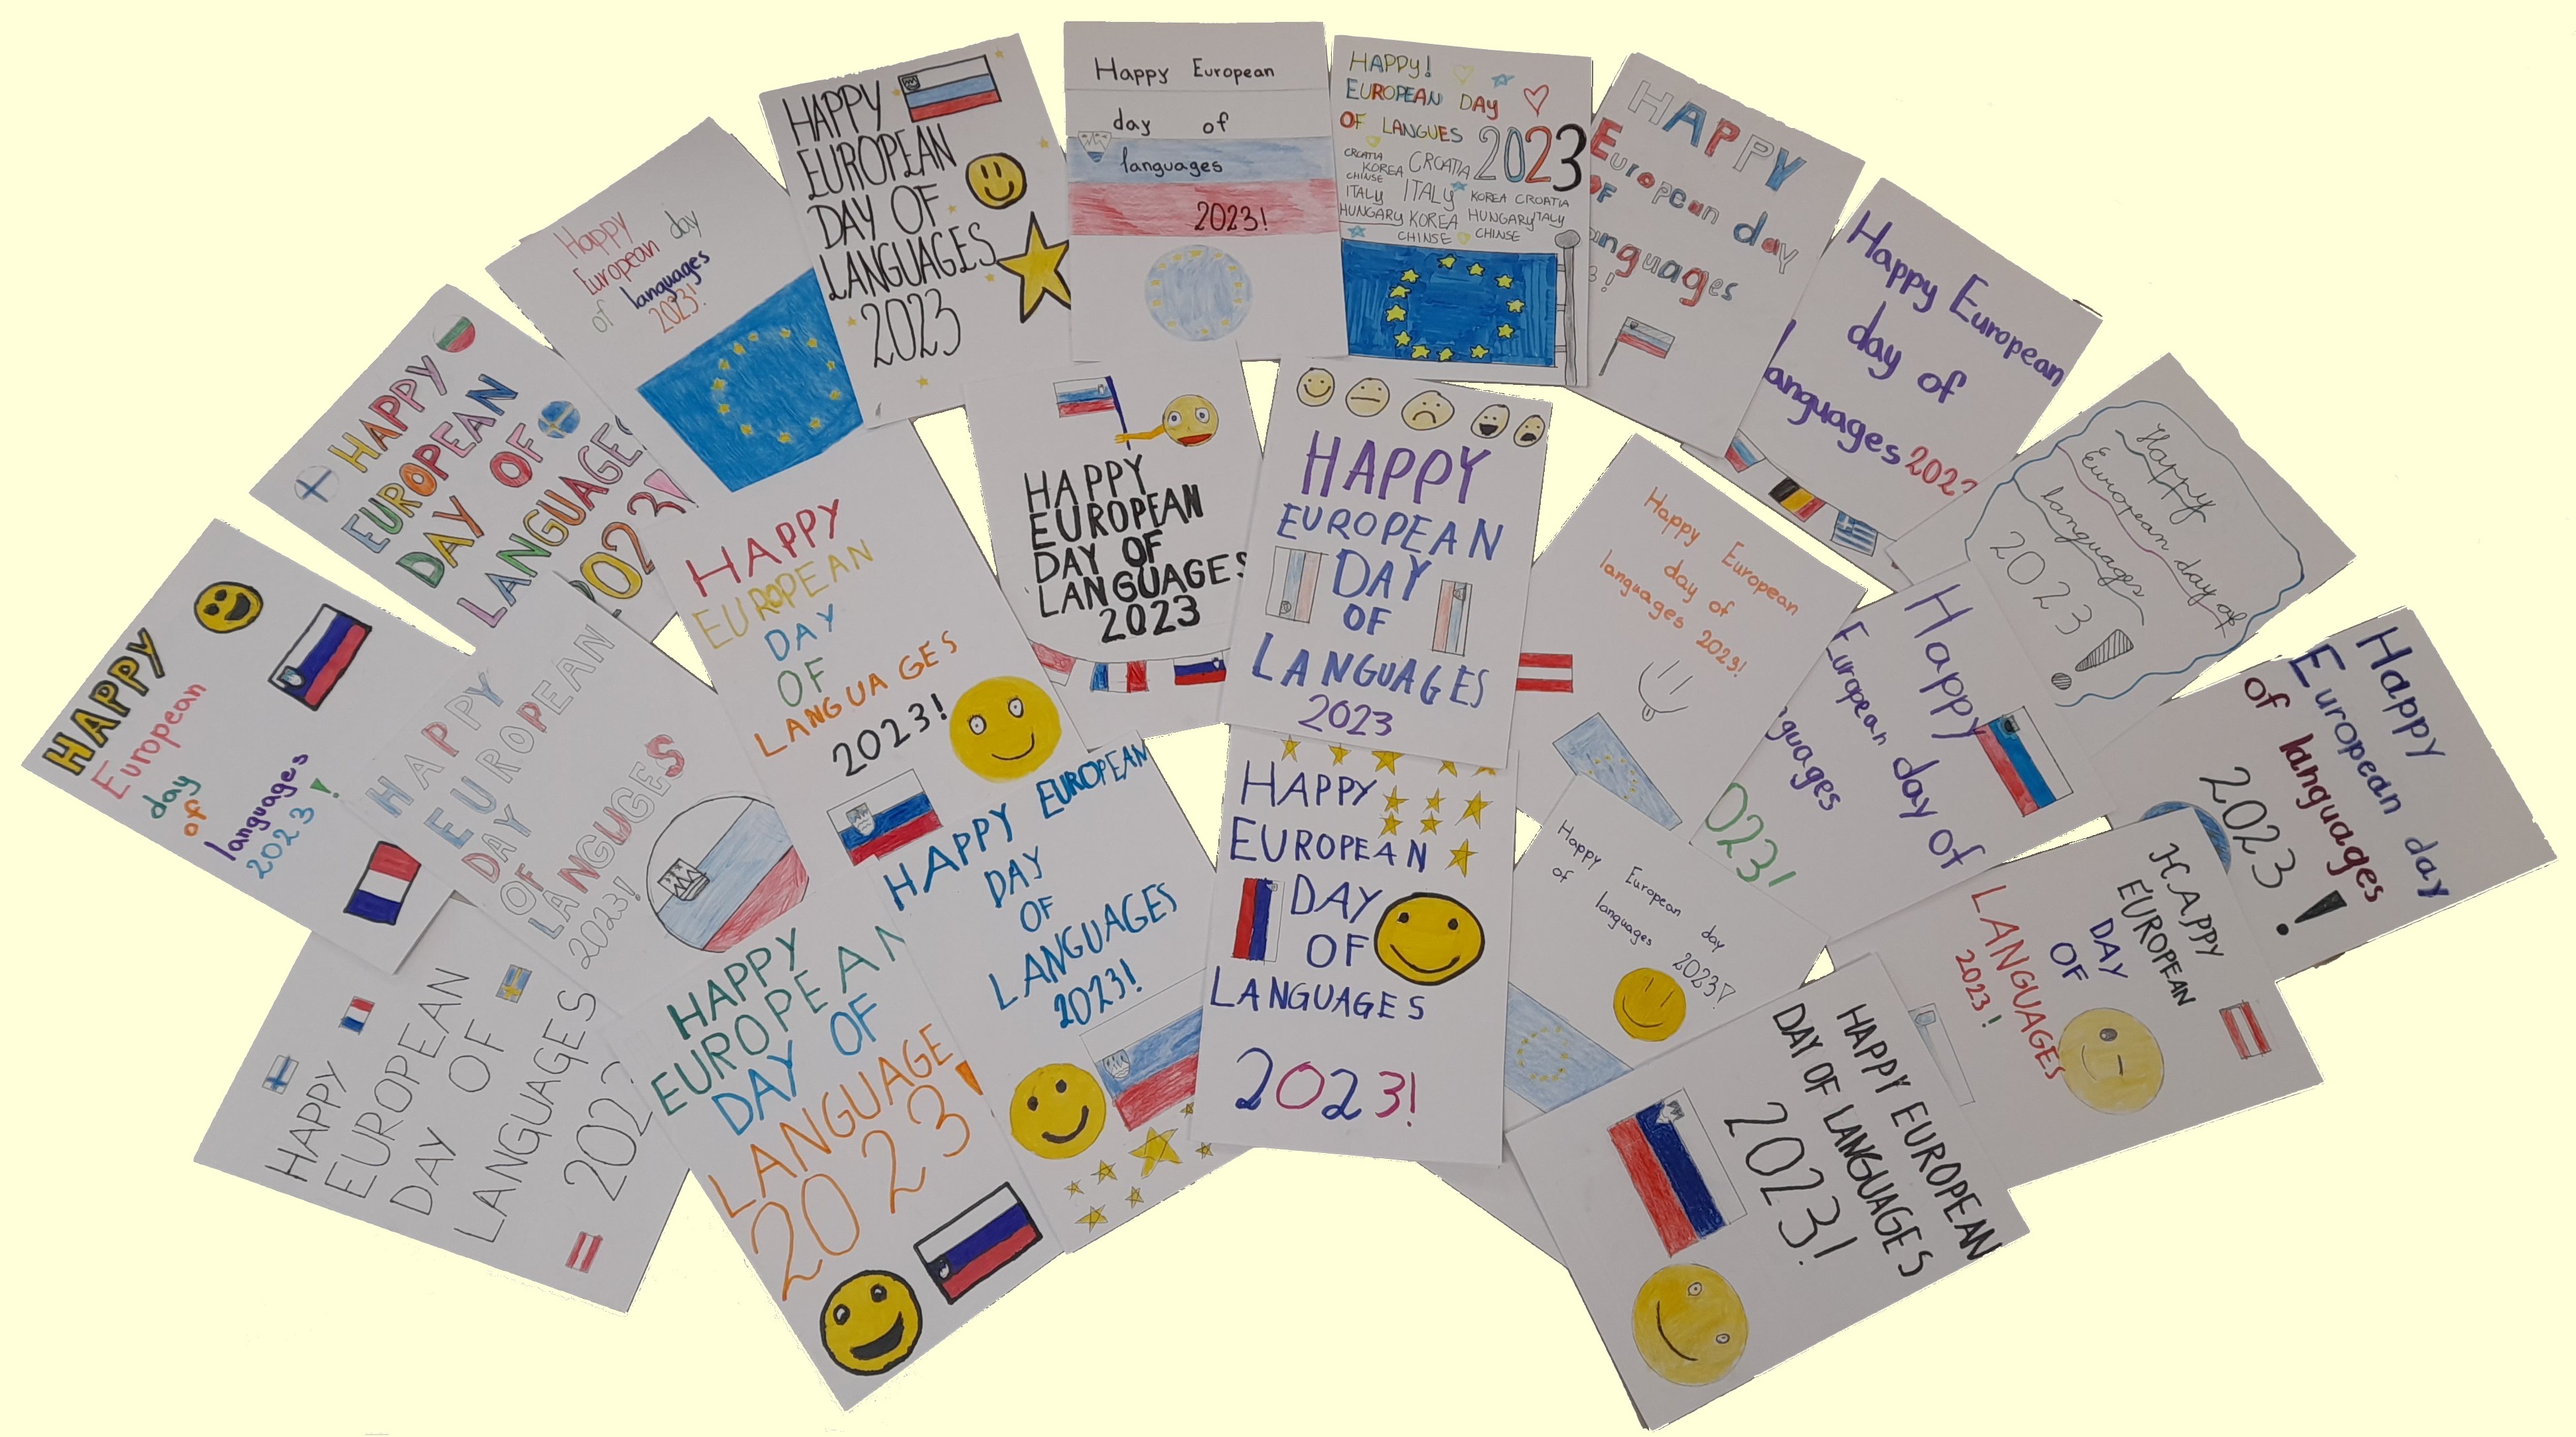 HAPPY
EUROPEAN
DAY OF
LANGUAGES
2023
Happy European
day of
languages
2023!
HAPPY!
EUROPEAN DAY
OF LANGUES 2023
CROATIA
KOREA CROATIA
CHINSE
ITALY ITALY KOREA CROATIA
HUNGARY KOREA HUNGARY ITALY
CHINSE CHINSE
HAPPY
European day
OF
anguages
!
Happy
European day
of languages
2023!
Happy European
day of
languages 2023
HAPPY
EUROPEAN
DAY OF
LANGUAGES
2023
HAPPY
EUROPEAN
DAY OF
LANGUAGES
2023
HAPPY
EUROPEAN
DAY
OF
LANGUAGES
2023
Happy European
day of
languages 2023!
Happy
European day of
languages
2023!
HAPPY
European
day
of
languages
2023!
HAPPY
EUROPEAN
DAY
OF
LANGUGES
2023!
HAPPY
EUROPEAN
DAY
OF
LANGUAGES
2023!
Happy
European day of
guages
023!
Happy
European day
of languages
2023!
HAPPY
EUROPEAN
DAY OF
LANGUAGES
202
HAPPY
EUROPEAN
DAY OF
LANGUAGE
2023!
HAPPY EUROPEAN
DAY
OF
LANGUAGES
2023!
HAPPY
EUROPEAN
DAY
OF
LANGUAGES
2023!
Happy European day
of languages 2023!
HAPPY
EUROPEAN
DAY
OF
LANGUAGES
2023!
HAPPY EUROPEAN
DAY OF LANGUAGES
2023!